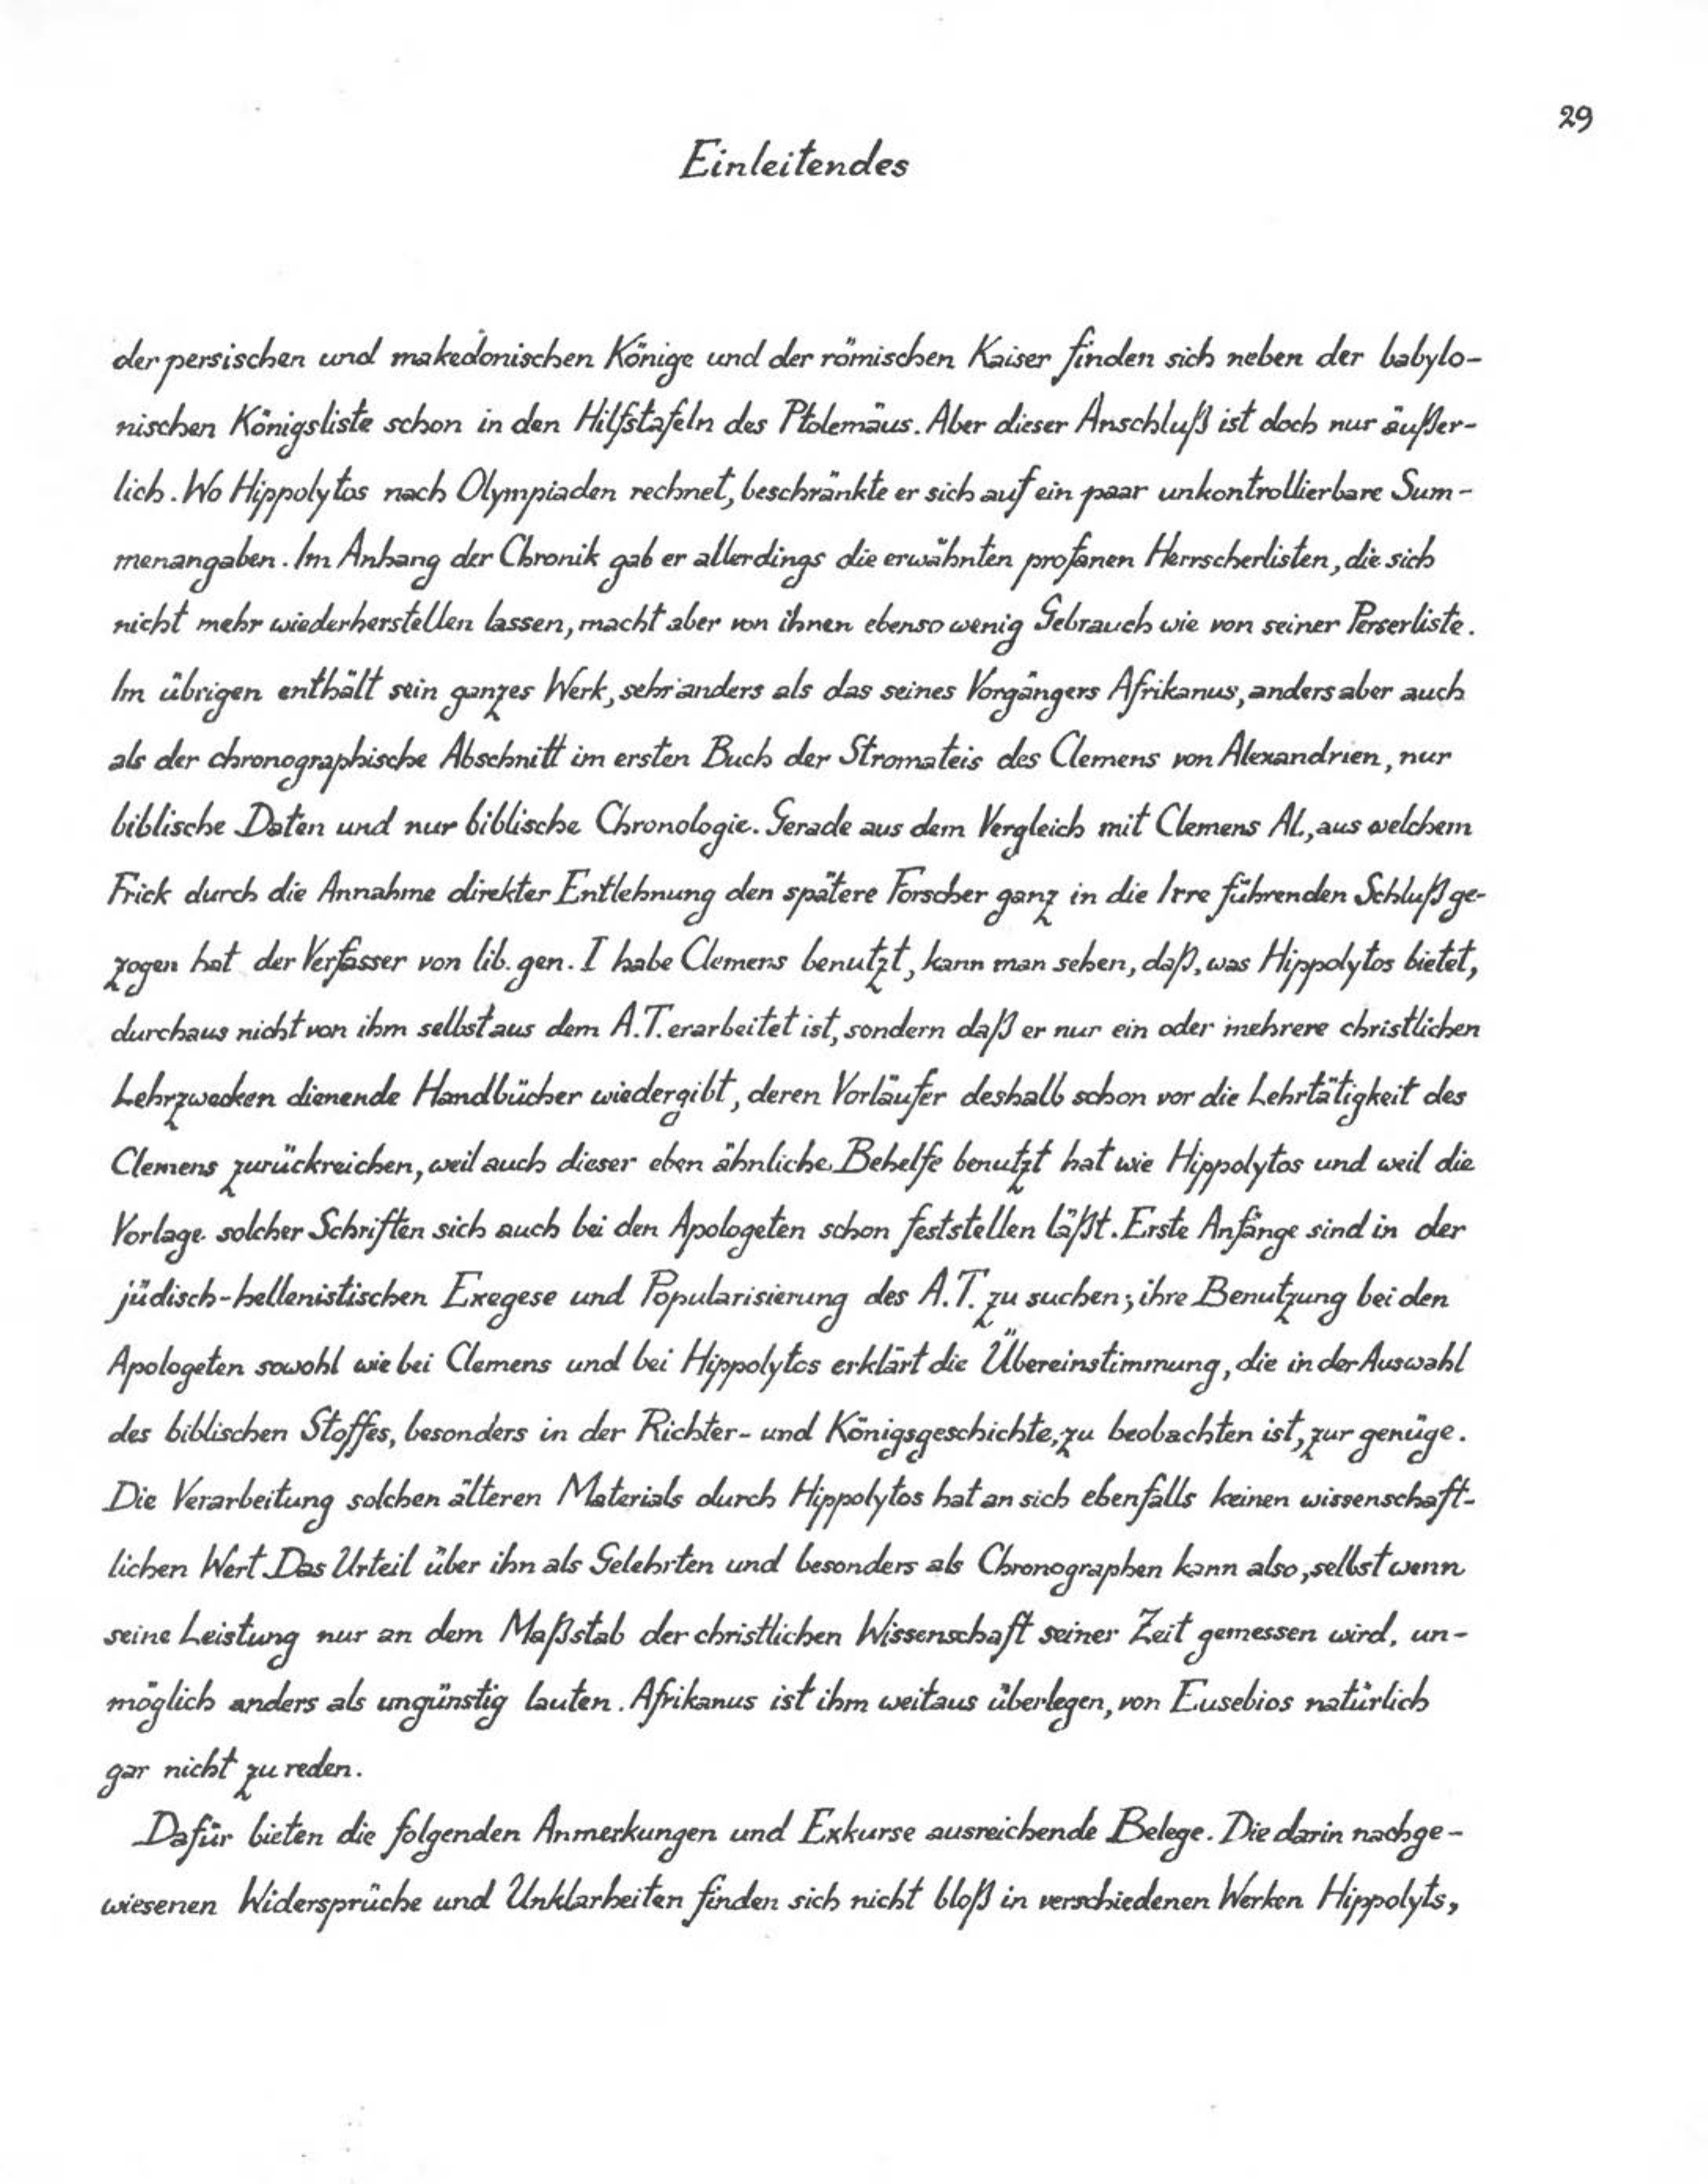 29
Einleitendes
der persischen und makedonischen Könige und der römischen Kaiser finden sich neben der babylo-
nischen Königsliste schon in den Hilfstafeln des Ptolemäus. Aber dieser Anschluß ist doch nur äußer-
lich. Wo Hippolytos nach Olympiaden rechnet, beschränkte er sich auf ein paar unkontrollierbare Sum-
menangaben. Im Anhang der Chronik gab er allerdings die erwähnten profanen Herrscherlisten, die sich
nicht mehr wiederherstellen lassen, macht aber von ihnen ebenso wenig Gebrauch wie von seiner Perserliste.
Im übrigen enthält sein ganzes Werk, sehr anders als das seines Vorgängers Afrikanus, anders aber auch
als der chronographische Abschnitt im ersten Buch der Stromateis des Clemens von Alexandrien, nur
biblische Daten und nur biblische Chronologie. Gerade aus dem Vergleich mit Clemens Al., aus welchem
Frick durch die Annahme direkter Entlehnung den spätere Forscher ganz in die Irre führenden Schluß ge-
zogen hat der Verfasser von lib. gen. I habe Clemens benutzt, kann man sehen, daß, was Hippolytos bietet,
durchaus nicht von ihm selbst aus dem A.T. erarbeitet ist, sondern daß er nur ein oder mehrere christlichen
Lehrzwecken dienende Handbücher wiedergibt, deren Vorläufer deshalb schon vor die Lehrtätigkeit des
Clemens zurückreichen, weil auch dieser eben ähnliche Behelfe benutzt hat wie Hippolytos und weil die
Vorlage solcher Schriften sich auch bei den Apologeten schon feststellen läßt. Erste Anfänge sind in der
jüdisch-hellenistischen Exegese und Popularisierung des A.T. zu suchen; ihre Benutzung bei den
Apologeten sowohl wie bei Clemens und bei Hippolytos erklärt die Übereinstimmung, die in der Auswahl
des biblischen Stoffes, besonders in der Richter- und Königsgeschichte, zu beobachten ist, zur genüge.
Die Verarbeitung solchen älteren Materials durch Hippolytos hat an sich ebenfalls keinen wissenschaft-
lichen Wert. Das Urteil über ihn als Gelehrten und besonders als Chronographen kann also, selbst wenn
seine Leistung nur an dem Maßstab der christlichen Wissenschaft seiner Zeit gemessen wird, un-
möglich anders als ungünstig lauten. Afrikanus ist ihm weitaus überlegen, von Eusebios natürlich
gar nicht zu reden.
Dafür bieten die folgenden Anmerkungen und Exkurse ausreichende Belege. Die darin nachge-
wiesenen Widersprüche und Unklarheiten finden sich nicht bloß in verschiedenen Werken Hippolyts,